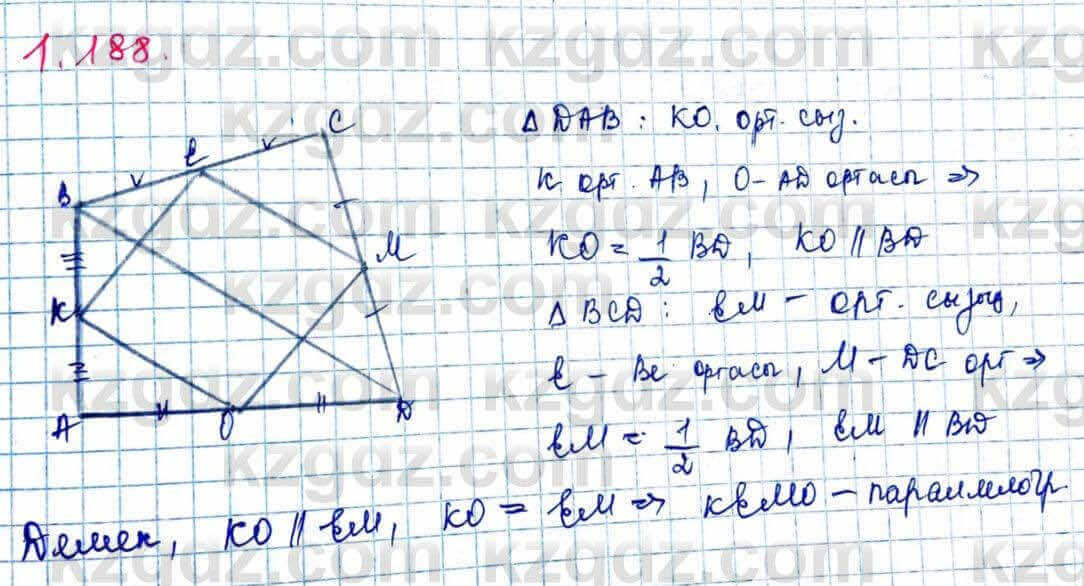 1.188.
C
ℓ
B
M
K
A
O
D
Δ DAB : KO. орт. сыз.
K орт. AB, O - AD ортасы =>
KO = 1/2 BD, KO || BD
Δ BCD : ℓM - орт. сызық,
ℓ - Bc ортасы, M - DC орт =>
ℓM = 1/2 BD, ℓM || BD
Демек, KO || ℓM, KO = ℓM => KℓMO - параллелогр.
kzgdz.com